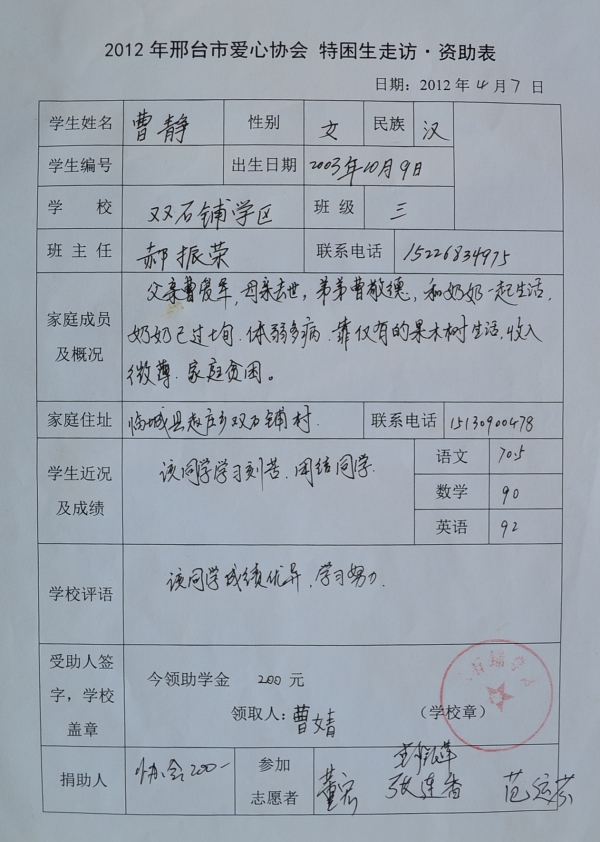 2012年邢台市爱心协会 特困生走访·资助表
日期：2012年4月7日
学生姓名 曹静 性别 女 民族 汉
学生编号 出生日期 2003年10月9日
学校 双石铺学区 班级 三
班主任 郝振荣 联系电话 15226834975
家庭成员及概况
父亲曹俊军，母亲去世，弟弟曹敬德，和奶奶一起生活，
奶奶已过七旬，体弱多病，靠仅有的果木树生活，收入
微薄，家庭贫困。
家庭住址 临城县赵庄乡双石铺村 联系电话 15130900478
学生近况及成绩 该同学学习刻苦，团结同学 语文 70.5
数学 90
英语 92
学校评语 该同学成绩优异，学习努力.
受助人签字，学校盖章
今领助学金 200 元
领取人：曹婧 （学校章）
捐助人 协会200- 参加志愿者
董宏 张连香 范